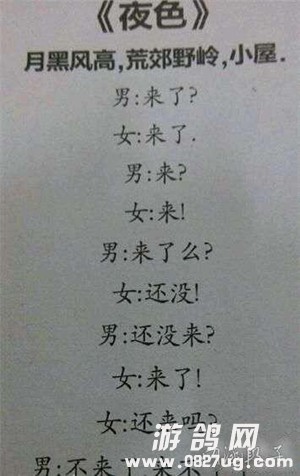 《夜色》
月黑风高,荒郊野岭,小屋.
男:来了?
女:来了.
男:来?
女:来!
男:来了么?
女:还没!
男:还没来?
女:来了!
女:还来吗?
男:不来了
游鸽网
www.0827ug.com